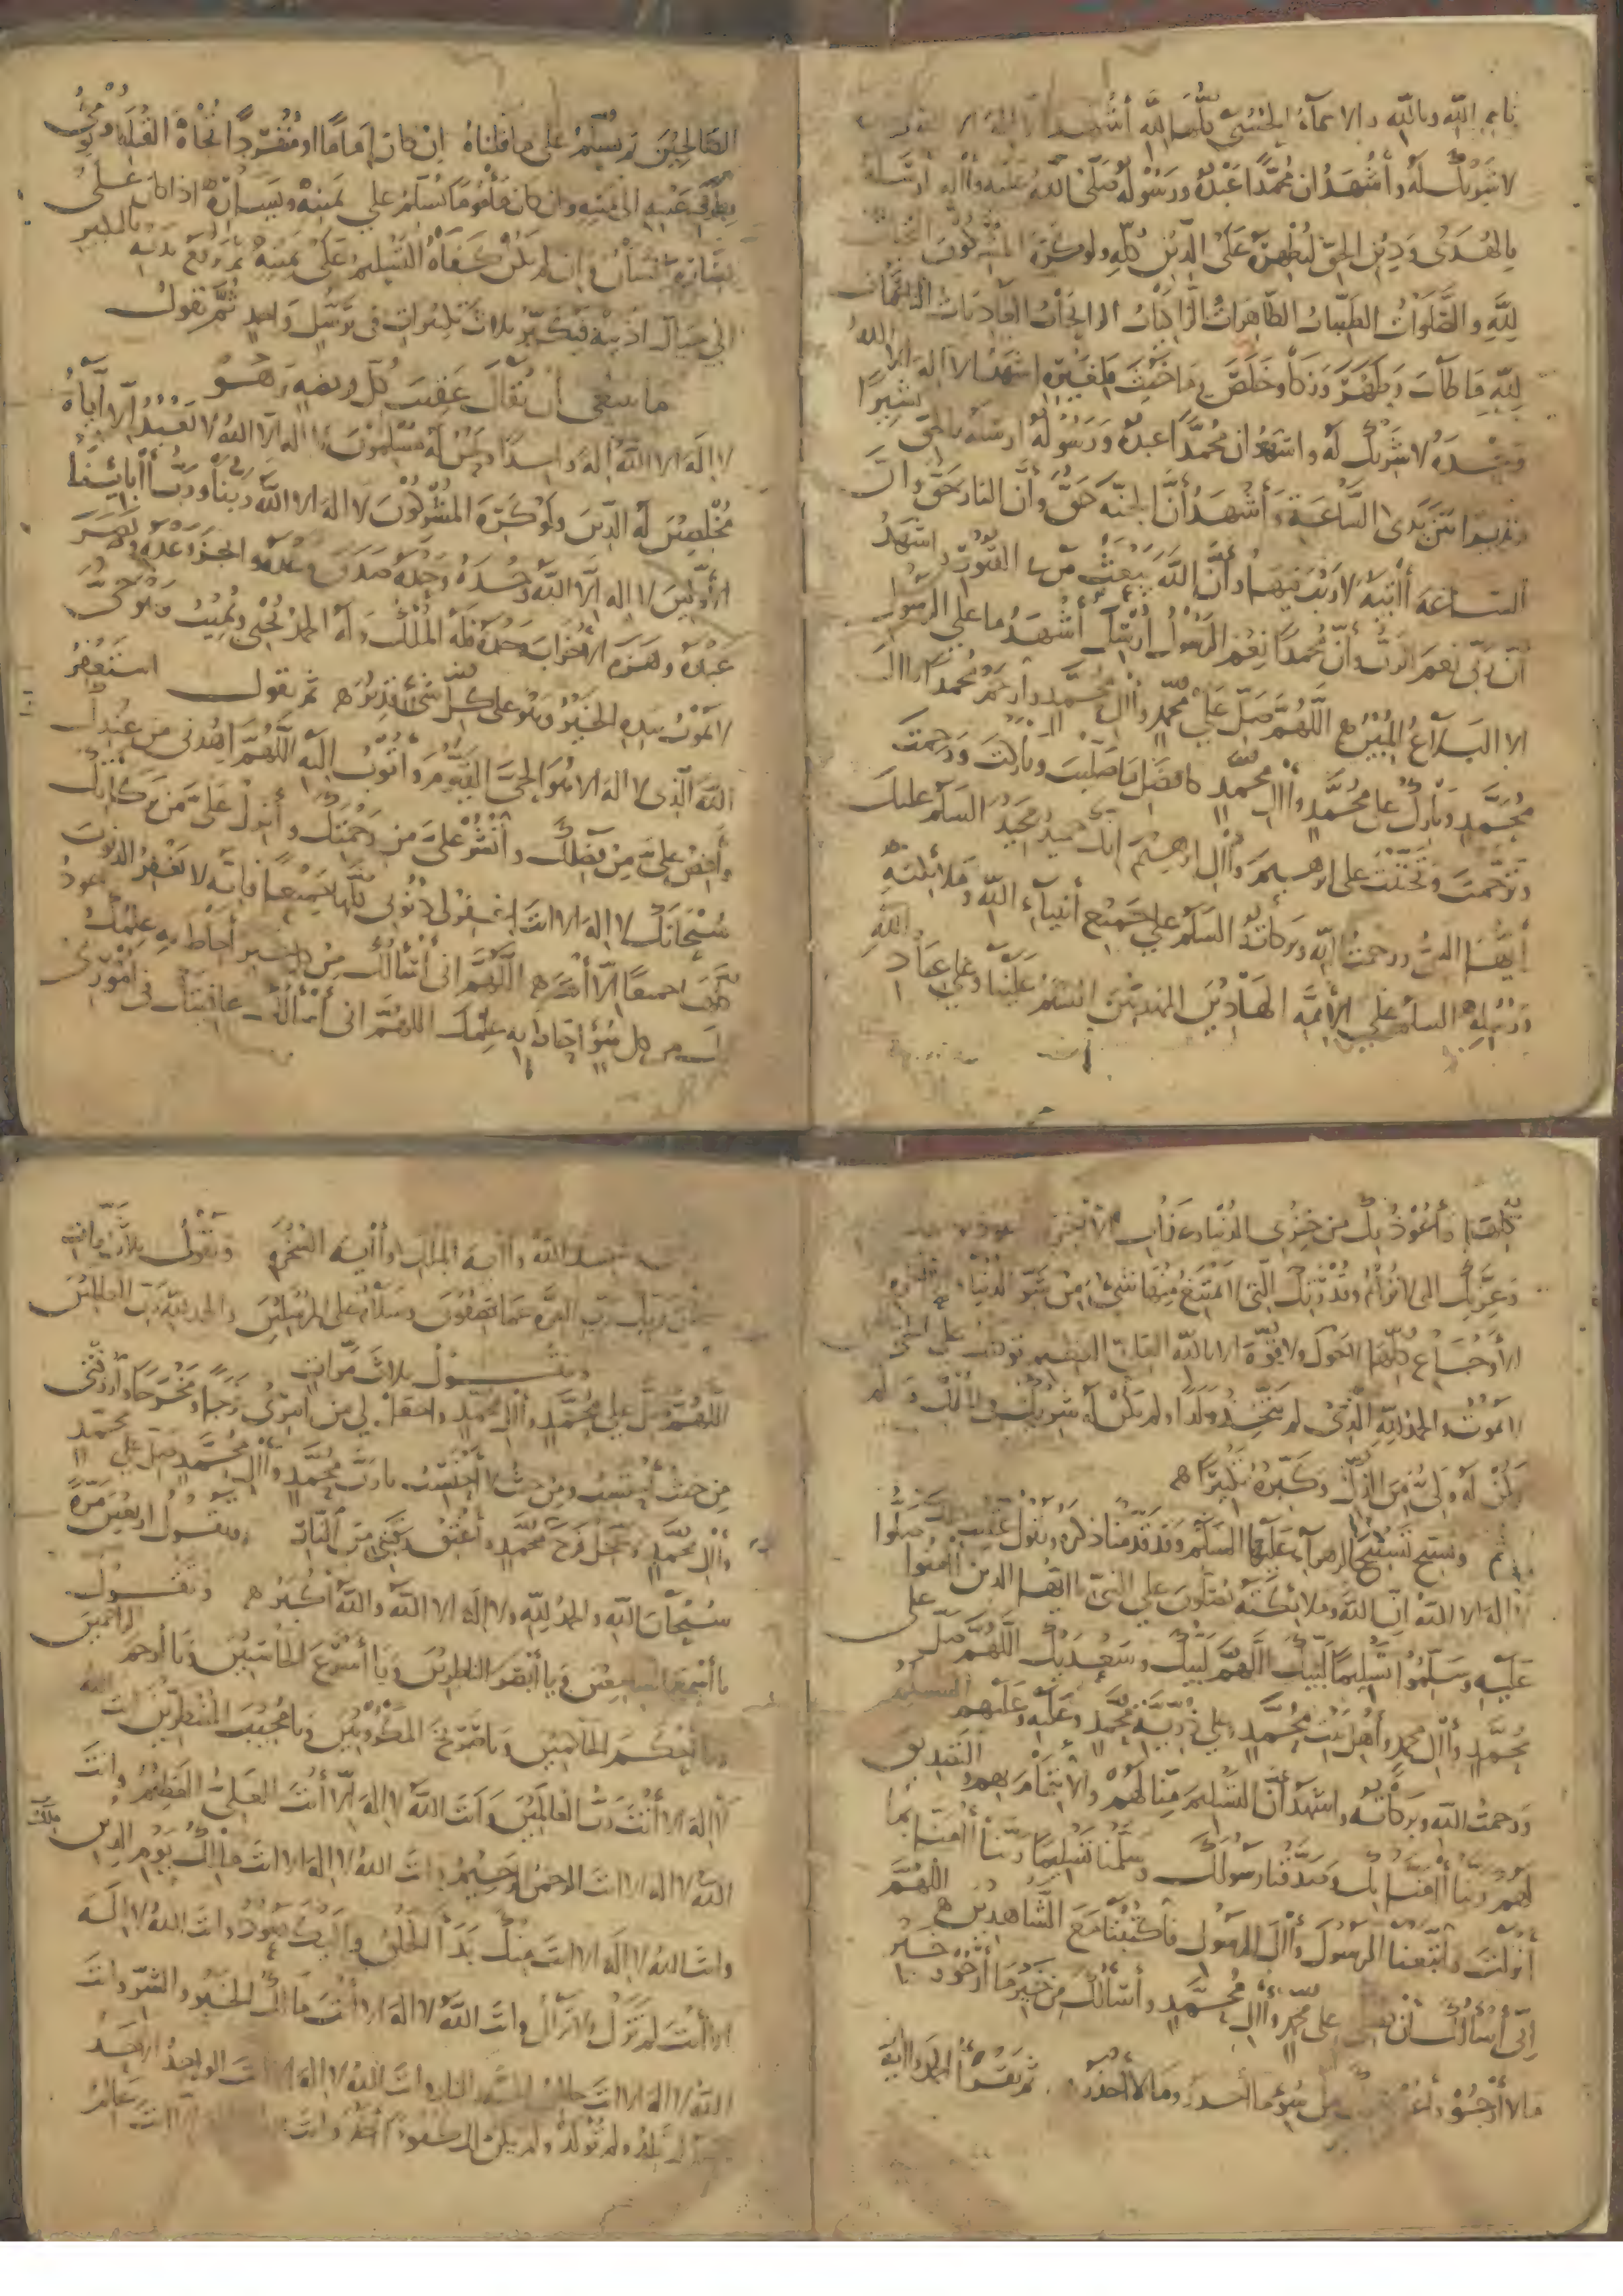 بسم الله وبالله والاسمآء الحسنى كلها لله أشهد ان لا اله الا الله
لا شريك له وأشهد ان محمدا عبده ورسوله صلى الله عليه واله أرسله
بالهدى ودين الحق ليظهره على الدين كله ولو كره المشركون التحيات
لله والصلوات الطيبات الطاهرات الزاكيات الرائحات الغاديات الناعمات
لله ما طاب وطهر وزكا وخلص وما خبث فلغيره اشهد ان لا اله الا الله
وحده لا شريك له واشهد ان محمدا عبده ورسوله ارسله بالحق بشيرا
ونذيرا بين يدى الساعة وأشهد أن الجنه حق وأن النار حق وان
الساعه آتية لا ريب فيها وأن الله يبعث من في القبور واشهد
أن ربى نعم الرب وأن محمدا نعم الرسول أرسل أشهد ما على الرسول
الا البلاغ المبين اللهم صل على محمد وآل محمد وارحم محمدا وال
محمد وبارك على محمد وآل محمد كافضل ما صليت وباركت ورحمت
وترحمت وتحننت على ابرهيم وآل ابرهيم انك حميد مجيد السلم عليك
أيها النبى ورحمت الله وبركاته السلم على جميع أنبيآء الله وملائكته
ورسله السلم على الأئمه الهادين المهديين السلم علينا وعلى عباد الله
الصالحين ثم يسلم على ما قلناه ان كان إماما او منفردا تجاه القبله
بمؤخر عينيه الى يمينه وان كان مأموما يسلم على يمينه ويساره اذا كان على
يساره انسان وان لم يكن كفاه التسليم على يمينه ثم يرفع يديه بالتكبير
الى حيال اذنيه فيكبر ثلاث تكبيرات في ترسل واحد ثم يقول
ما ينبغي أن يقال عقيب كل فريضه وهو
لا اله الا الله إلها واحدا ونحن له مسلمون لا اله الا الله لا نعبد إلا اياه
مخلصين له الدين ولو كره المشركون لا اله الا الله ربنا ورب آبائنا
الأولين لا اله إلا الله وحده وحده صدق وعده وانجز وعده ونصر
عبده وهزم الأحزاب وحده فله الملك وله الحمد يحيى ويميت وهو حى
لا يموت بيده الخير وهو على كل شئ قدير ثم يقول استغفر
الله الذى لا اله الا هو الحى القيوم وأتوب اليه اللهم اهدنى من عندك
وأفض على من فضلك وأنشر على من رحمتك وأنزل على من بركاتك
سبحانك لا اله الا انت اغفر لى ذنوبى كلها جميعا فانه لا يغفر الذنوب
كلها جميعا إلا أنت اللهم انى أسألك من كل خير أحاط به علمك واعوذ
بك من كل سوء احاط به علمك اللهم انى أسألك عافيتك في امورى
كلها وأعوذ بك من خزى الدنيا وعذاب الآخرة
وعزتك التى لا ترام وقدرتك التى لا يمتنع منها شئ من شر الدنيا والاخره
الأوجاع كلها لا حول ولا قوة الا بالله العلى العظيم توكلت على الحى الذى
لا يموت والحمد لله الذى لم يتخذ ولدا ولم يكن له شريك في الملك ولم
يكن له ولى من الذل وكبره تكبيرا
ثم ويسبح تسبيح الزهرآء عليها السلم وقد قدمنا ذكره ويقول عقيب
لا اله الا الله إن الله وملائكته يصلون على النبى يا ايها الذين آمنوا صلوا
عليه وسلموا تسليما لبيك اللهم لبيك وسعديك اللهم صل على
محمد وآل محمد وأهل بيت محمد وعلى ذرية محمد وعليه وعليهم السلم
ورحمت الله وبركاته واشهد أن التسليم منا لهم والائتمام بهم والتصديق
لهم ربنا آمنا بك وصدقنا رسولك وسلمنا تسليما ربنا آمنا بما
أنزلت واتبعنا الرسول وآل الرسول فاكتبنا مع الشاهدين اللهم
إنى أسألك أن تصلى على محمد وآل محمد وأسألك من خير ما أرجو وخير
ما لا أرجو وأعوذ بك من شر ما أحذر وما لا أحذر ثم يقرأ الحمد واية
شهد الله وآية الملك وآية السخره ويقول ثلاث مرات
سبحان ربك رب العزة عما يصفون وسلام على المرسلين والحمد لله رب العالمين
ويقول ثلاث مرات
اللهم صل على محمد وآل محمد واجعل لى من امرى فرجا ومخرجا وارزقنى
من حيث أحتسب ومن حيث لا أحتسب يا رب محمد وآل محمد صل على محمد
وآل محمد وعجل فرج محمد وأعتق رقبتى من النار ويقول اربعين مرة
سبحان الله والحمد لله ولا اله الا الله والله أكبر ويقول
يا أسمع السامعين ويا أبصر الناظرين ويا أسرع الحاسبين ويا أرحم الراحمين
ويا أحكم الحاكمين ويا صريخ المكروبين ويا مجيب المضطرين انت الله
لا اله الا أنت رب العالمين وانت الله لا اله إلا أنت العلى العظيم وانت
الله لا اله الا انت الرحمن الرحيم وانت الله لا اله الا انت مالك يوم الدين
ملك
وانت الله لا اله الا انت منك بدأ الخلق واليك يعود وانت الله لا اله
الا أنت لم تزل ولا تزال وانت الله لا اله الا أنت مالك الخير والشر وانت
الله لا اله الا انت خالق الجنة والنار وانت الله لا اله الا انت الواحد الاحد
لم يلد ولم يولد ولم يكن له كفوا أحد وانت انت عالم